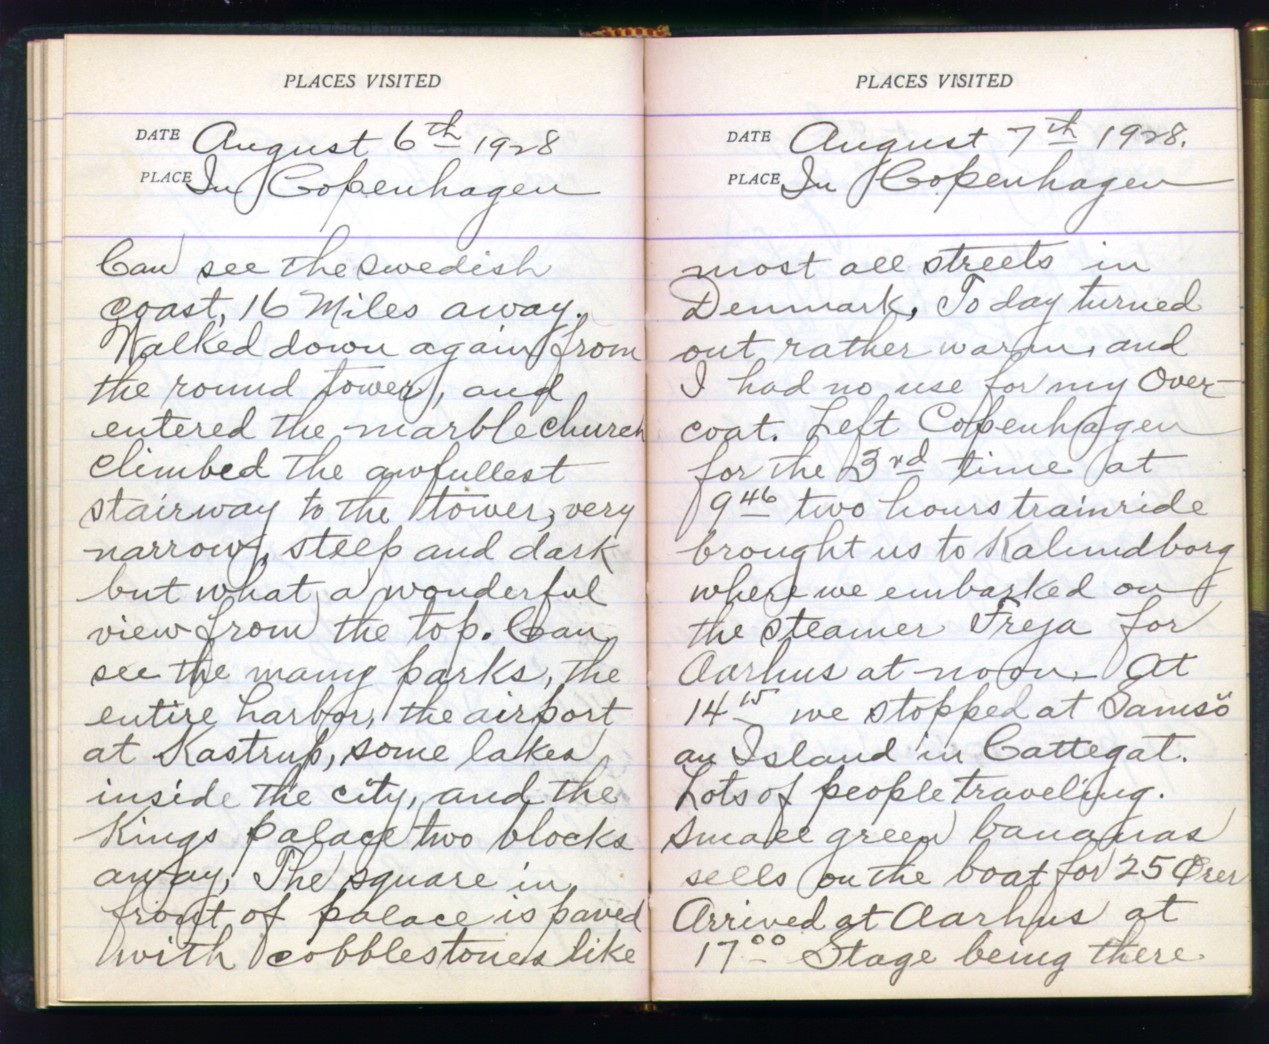 PLACES VISITED
DATE August 6th 1928
PLACE In Copenhagen
Can see the Swedish
coast, 16 Miles away.
Walked down again from
the round tower, and
entered the marble church
climbed the awfullest
stairway to the tower, very
narrow, steep and dark
but what a wonderful
view from the top. Can
see the many parks, the
entire harbor, the airport
at Kastrup, some lakes
inside the city, and the
Kings palace two blocks
away, The square in
front of palace is paved
with cobblestones like
PLACES VISITED
DATE August 7th 1928.
PLACE In Copenhagen
most all streets in
Denmark, To day turned
out rather warm, and
I had no use for my Over-
coat. Left Copenhagen
for the 3rd time at
9 46 two hours trainride
brought us to Kalundborg
where we embarked on
the steamer Freja for
Aarhus at noon. At
14 15 we stopped at Samsö
an Island in Cattegat.
Lots of people traveling.
Small green bananas
sells on the boat for 25 Ører
Arrived at Aarhus at
17 00 Stage being there